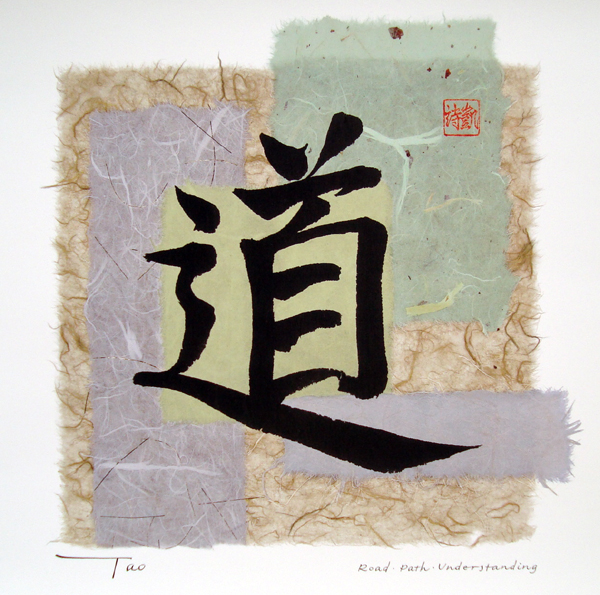 道
凱詩
Tao
Road · Path · Understanding